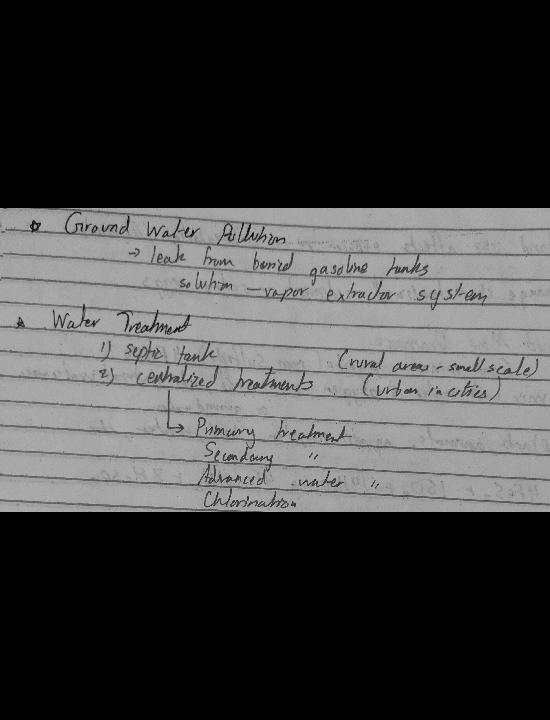 Ground Water Pollution
→ leak from buried gasoline tanks
solution - vapor extractor system
Water Treatment
1) septic tank (rural areas - small scale)
2) centralized treatments (urban in cities)
↳ Primary treatment
Secondary "
Advanced water "
Chlorination